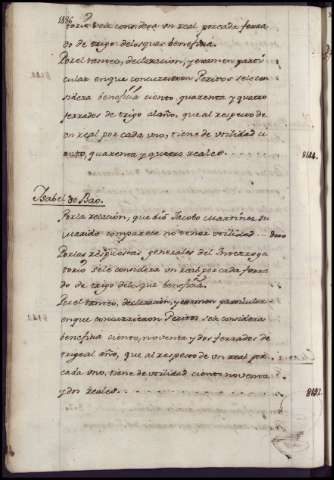 1886
torio se le considera un real por cada ferra
do de trigo de los que beneficia.
Por el tanteo, declaracion, y examen parti
cular en que concurrieron Peritos se le con
sidera beneficia ciento quarenta y quatro
ferrados de trigo al año, que al respecto de
un real por cada uno, tiene de utilidad ci
ento, quarenta y quatro reales. 144.
Isabel do Bao.
Por la relacion, que dio Jacobo Martinez su
Marido comparece no tener utilidad
Por las respuestas generales del Interroga
torio se le considera un real por cada ferra
do de trigo de los que beneficia.
Por el tanteo, declaracion, y examen particular
en que concurrieron Peritos se le considera
beneficia ciento, noventa y dos ferrados de
trigo al año, que al respecto de un real por
cada uno, tiene de utilidad ciento noventa
y dos reales. 192.